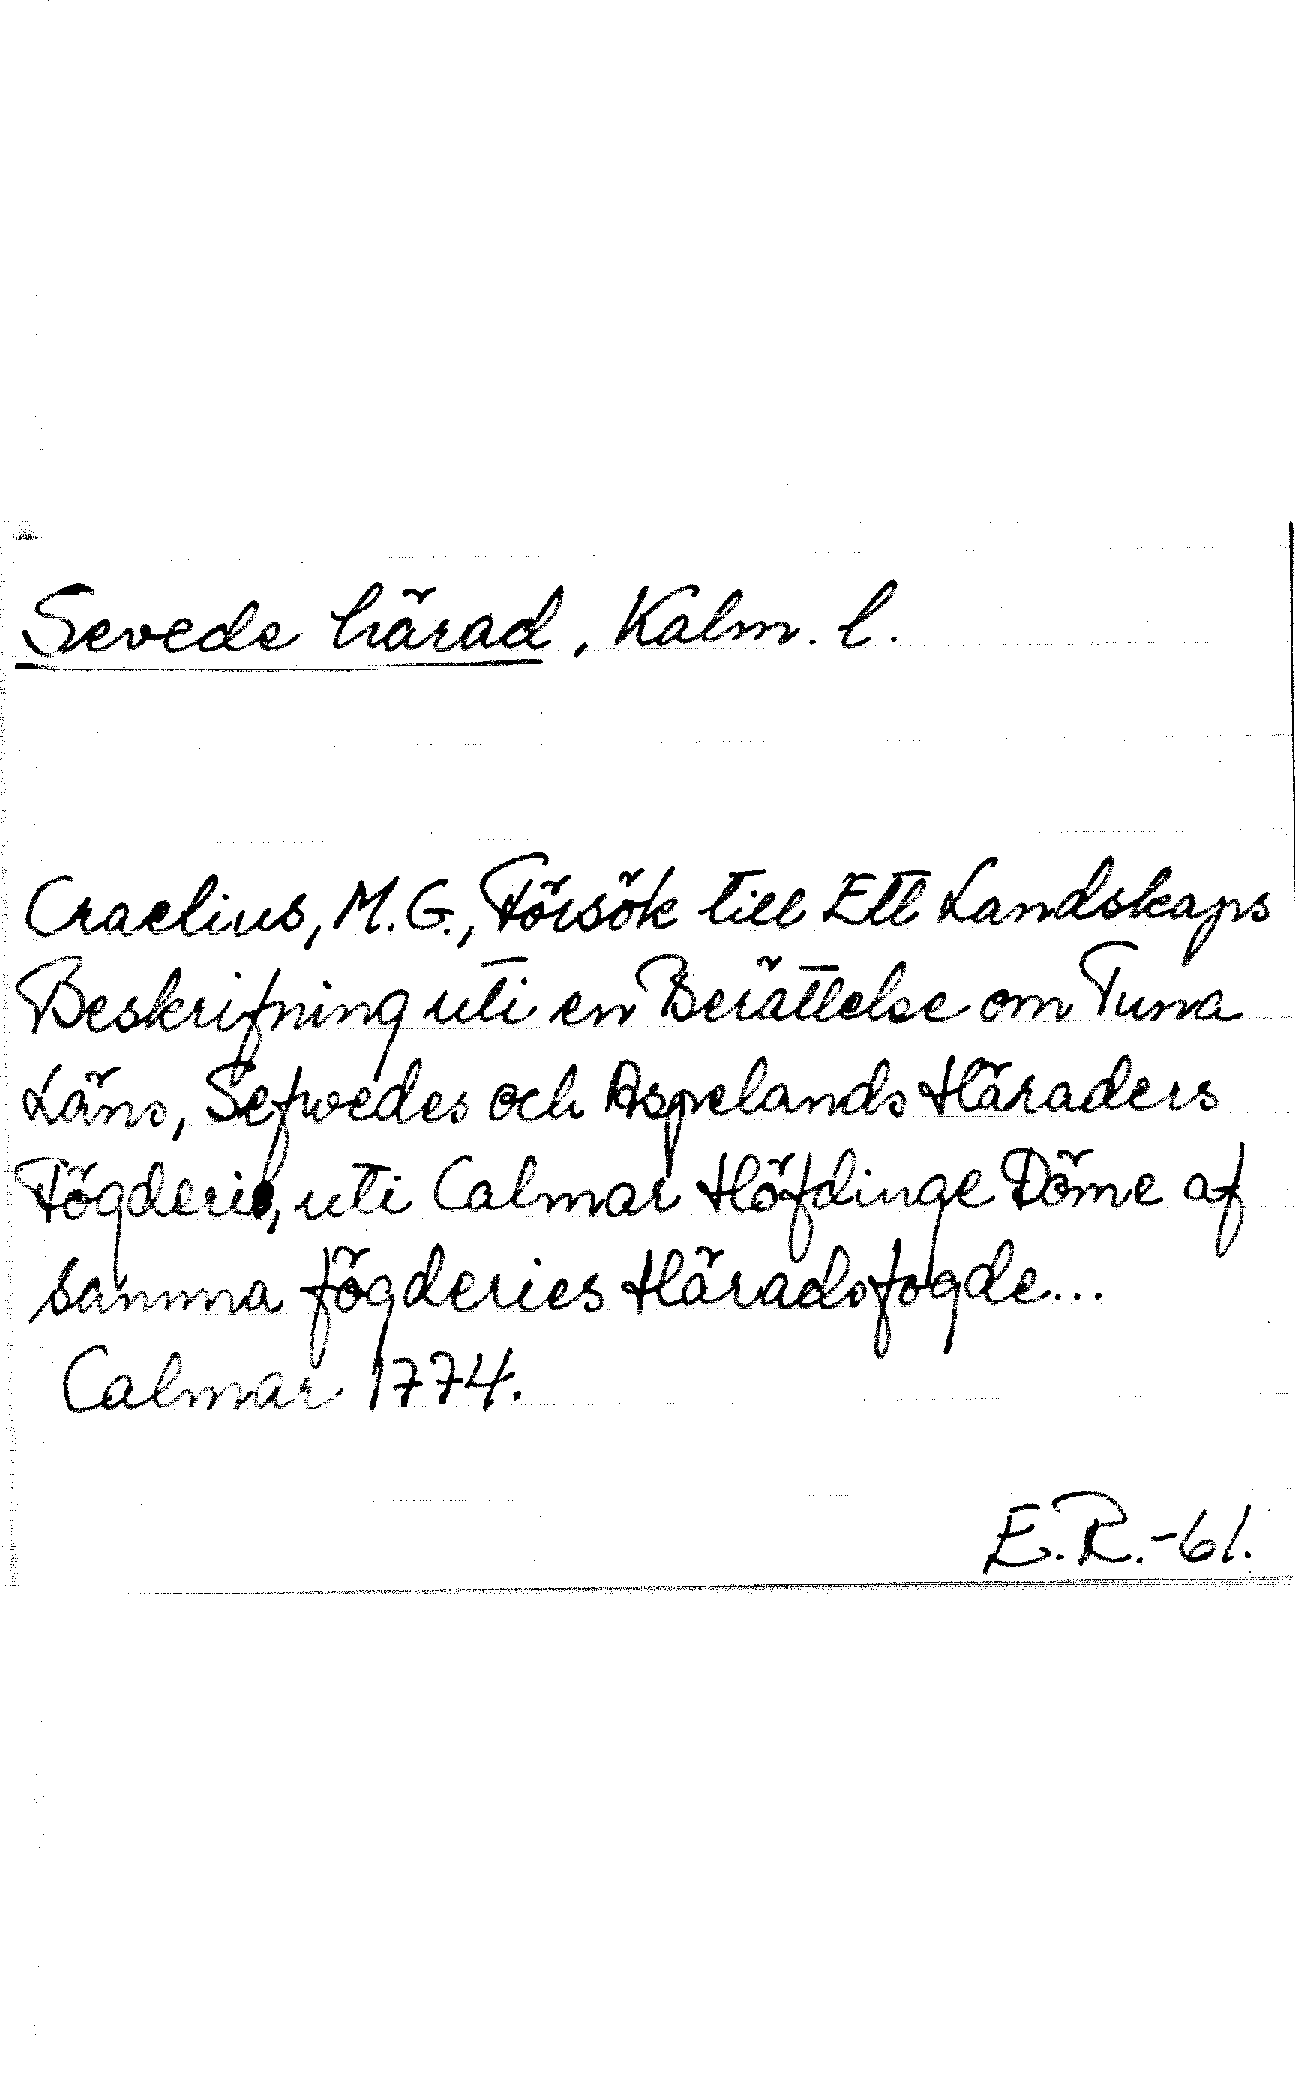 Sevede härad, Kalm. l.
Craelius, M.G., Försök till Ett Landskaps
Beskrifning uti en Berättelse om Tuna
Läns, Sefwedes och Aspelands Häraders
Fögderie, uti Calmar Höfdinge Döme af
samma fögderies Häradsfogde...
Calmar 1774.
E.R.-61.